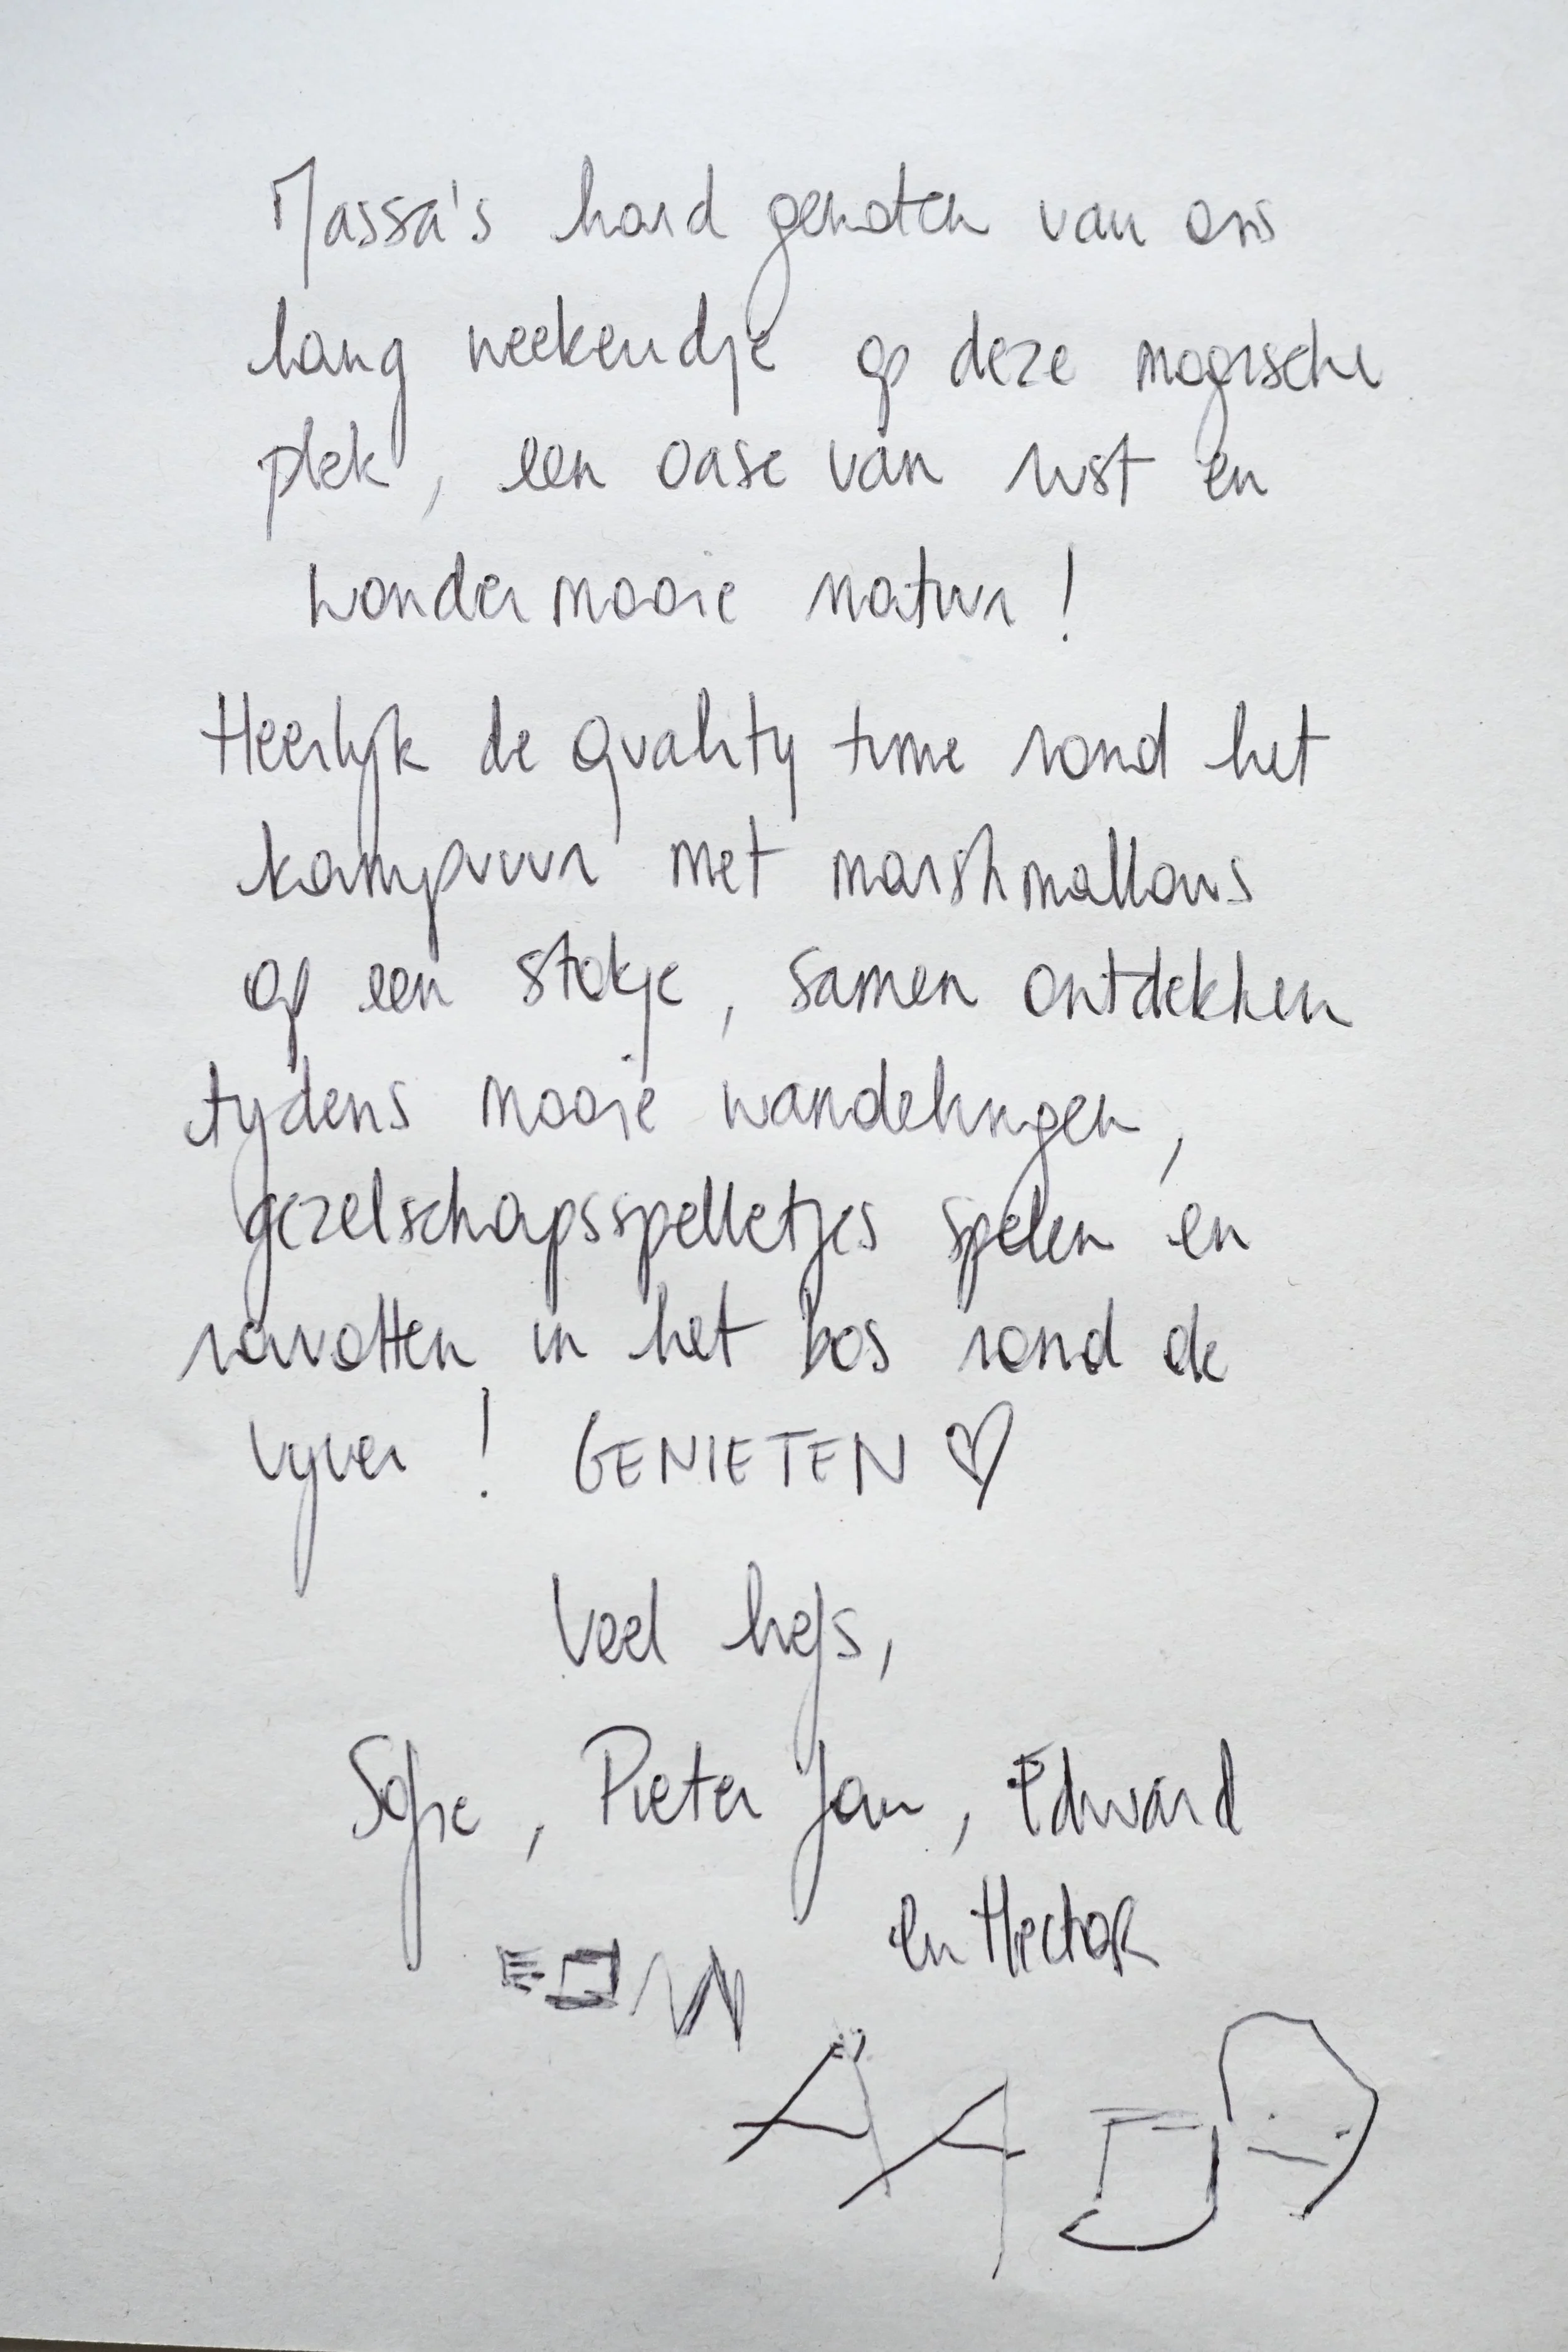 Massa's hard genoten van ons
lang weekendje op deze magische
plek, een oase van rust en
wondermooie natuur!
Heerlijk de quality time rond het
kampvuur met marshmallows
op een stokje, samen ontdekken
tijdens mooie wandelingen,
gezelschapsspelletjes spelen en
ravotten in het bos rond de
vijver! GENIETEN ♡
Veel liefs,
Sofie, Pieter Jan, Edward
en Hector